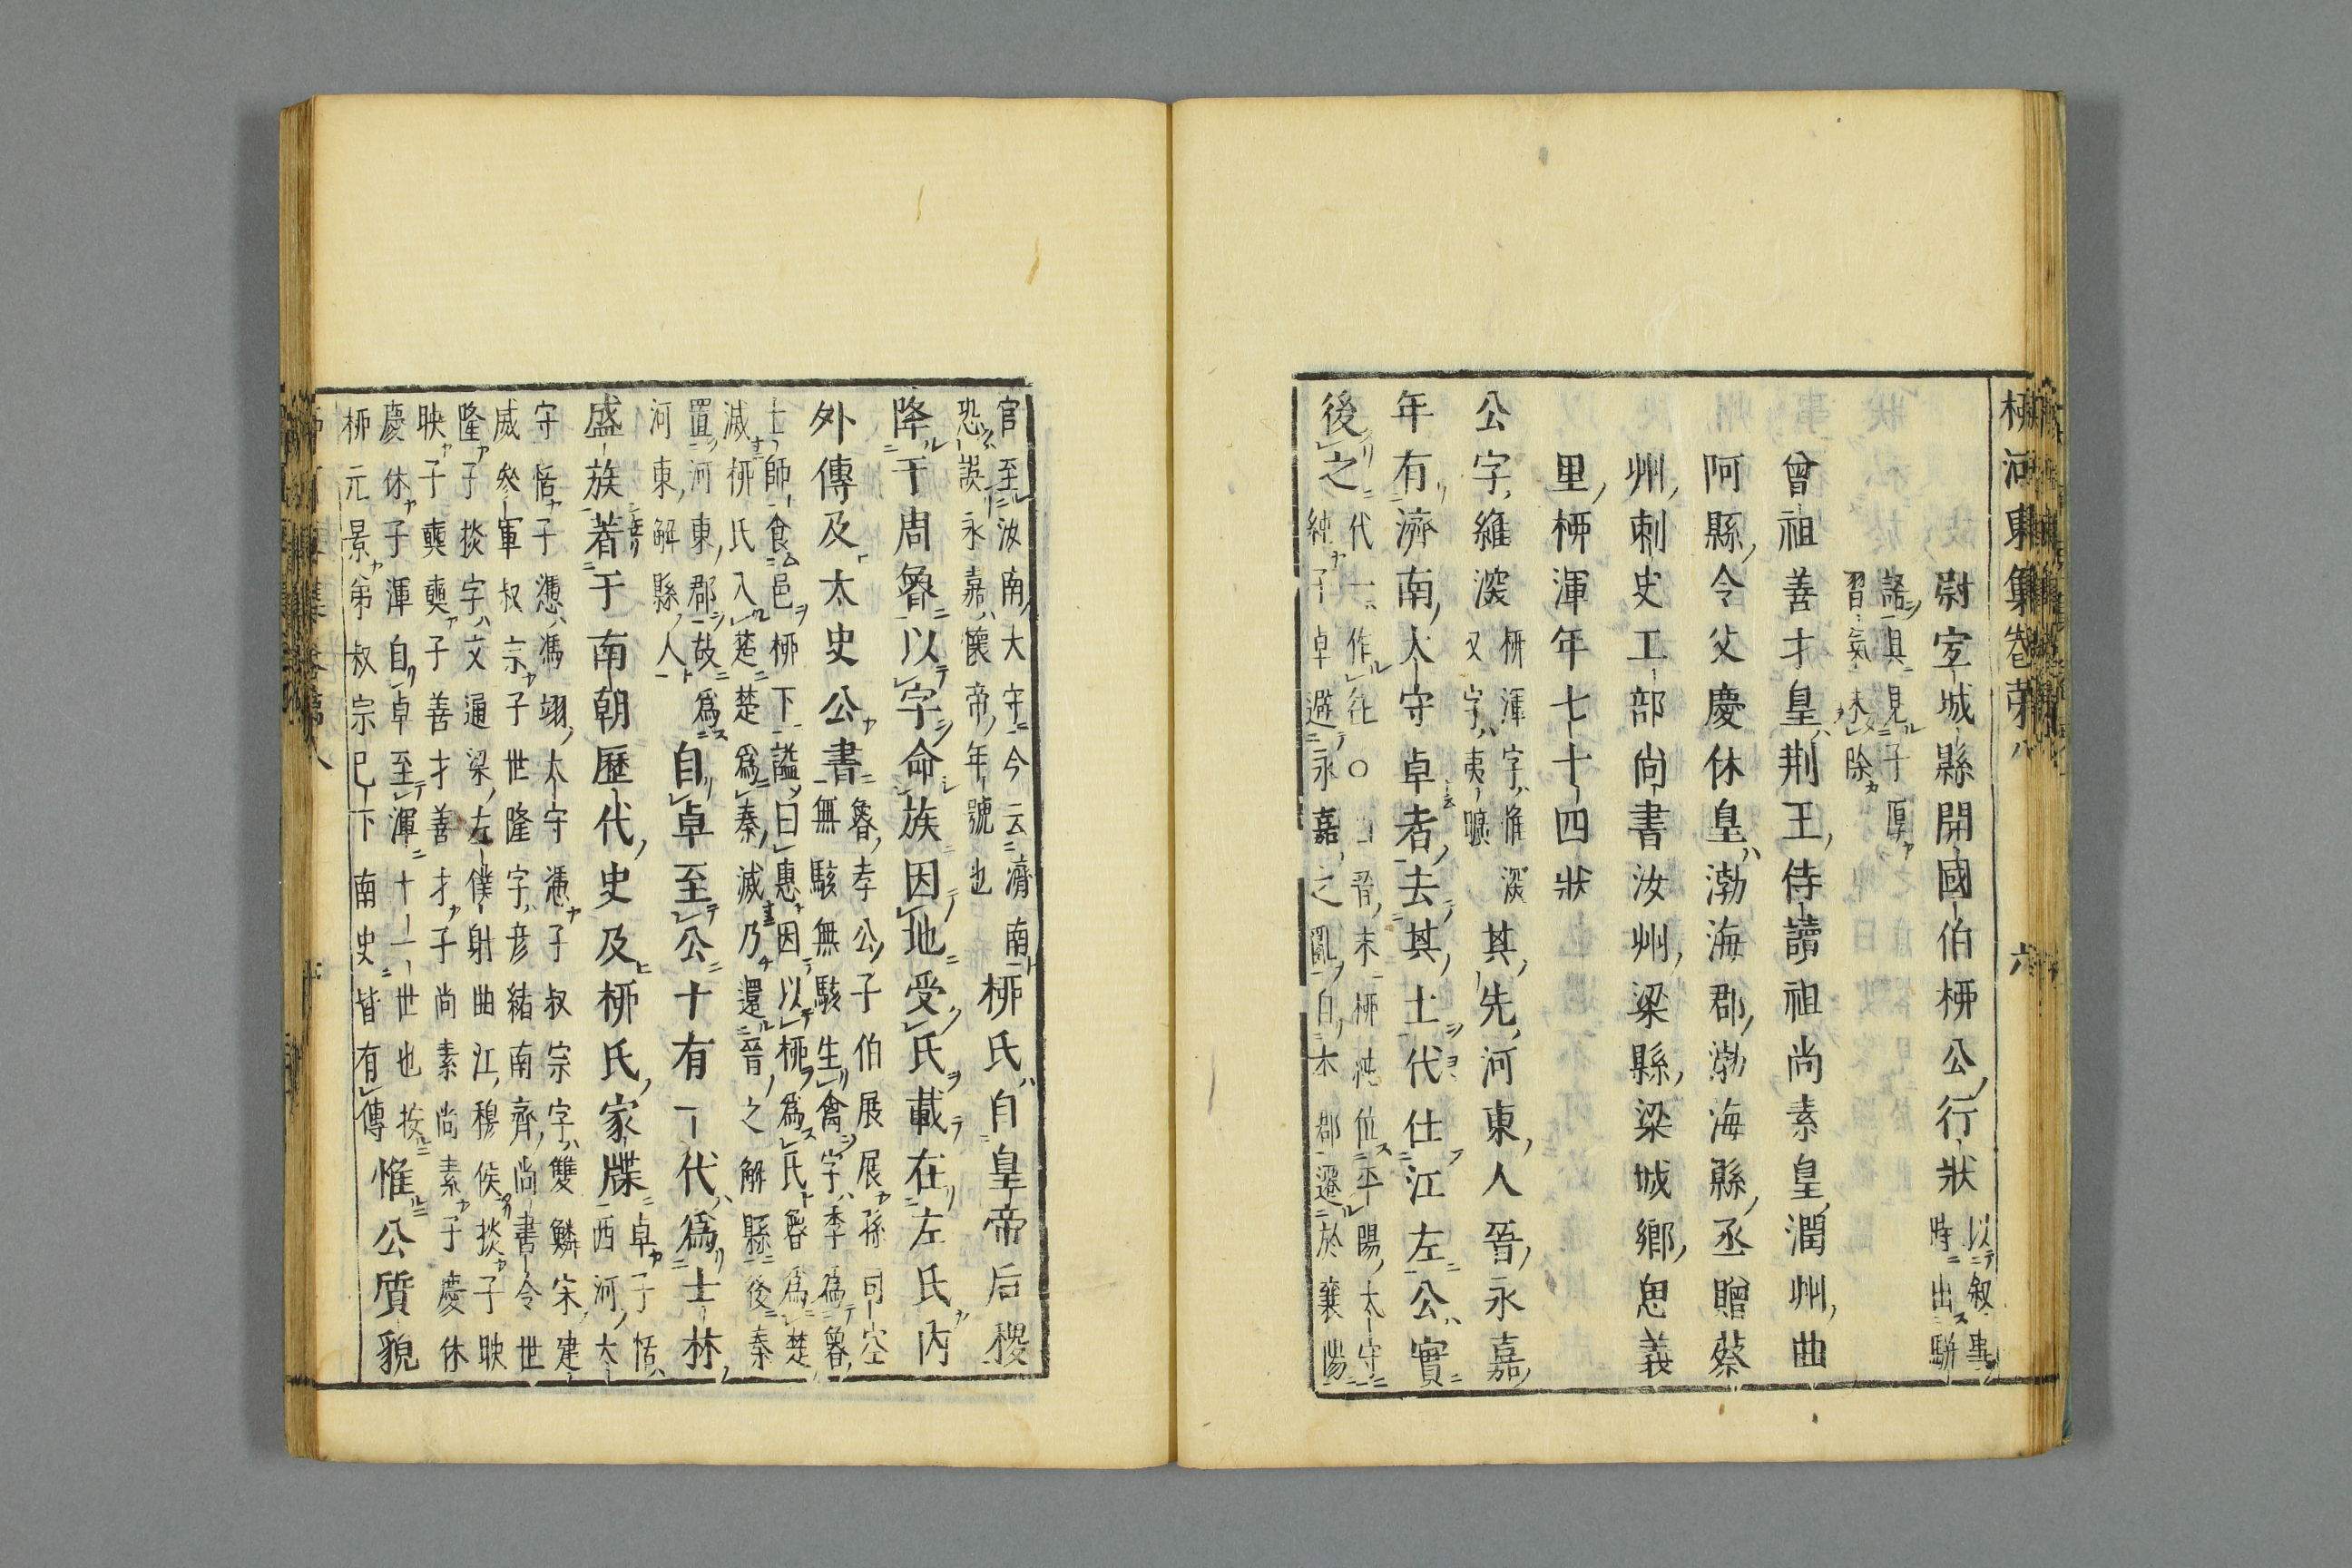 柳河東集卷第八
六
尉宜城縣開國伯柳公行狀
以敘事
時出駢
語具見子厚
習氣未除
曾祖善才皇荆王侍讀祖尚素皇潤州曲
阿縣令父慶休皇渤海郡渤海縣丞贈蔡
州刺史工部尚書汝州梁縣梁城鄉思義
里柳渾年七十四狀
公字維深
柳渾字惟深
又字夷曠
其先河東人晉永嘉
年有濟南太守卓者去其土代仕江左公實
後之
代一作在○
晉末柳純位平陽太守
純子卓避永嘉之亂自本郡遷於襄陽
官至汝南太守今云濟南
恐誤永嘉懷帝年號也
柳氏自皇帝后稷
降于周魯以字命族因地受氏載在左氏内
外傳及太史公書
魯孝公子伯展展孫司空
無駭無駭生禽字季爲魯
士師食邑柳下謚曰惠因以柳爲氏魯爲楚
滅柳氏入楚楚爲秦滅乃還晉之解縣後秦
置河東郡故爲
河東解縣人
自卓至公十有一代爲士林
盛族著于南朝歷代史及柳氏家牒
卓子恬
西河太
守恬子憑馮翊太守憑子叔宗字雙鱗宋建
威參軍叔宗子世隆字彦緒南齊尚書令世
隆子惔字文通梁左僕射曲江穆侯惔子映
映子奭奭子善才善才子尚素尚素子慶休
慶休子渾自卓至渾十一世也按
柳元景弟叔宗已下南史皆有傳
惟公質貌